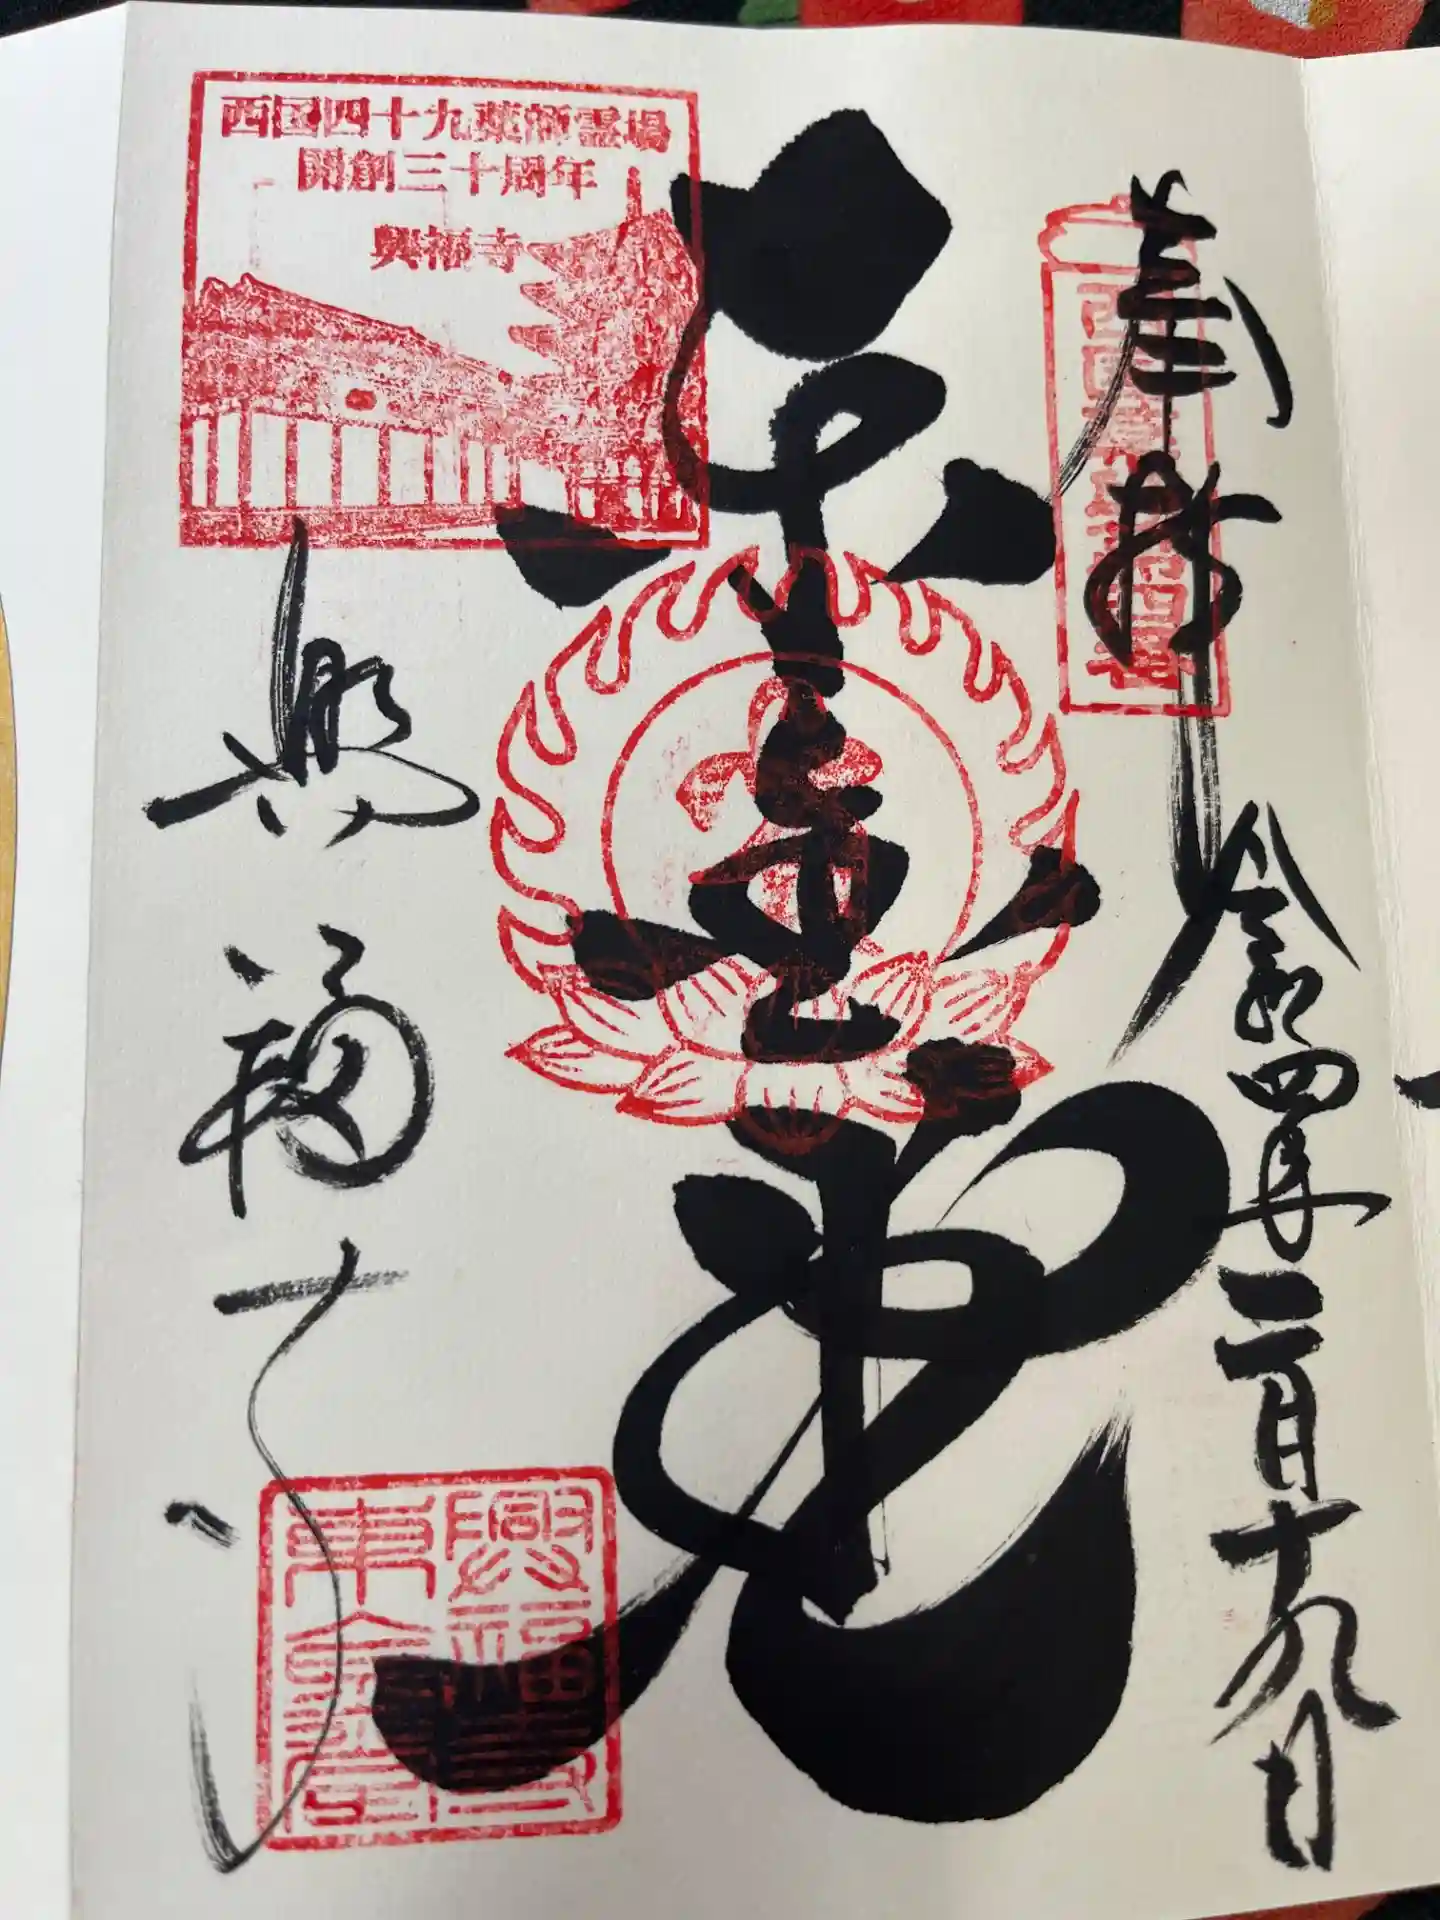 奉拝
令和四年二月十九日
西国薬師第四番
東金堂
西国四十九薬師霊場
開創三十周年
興福寺
興福寺
興福寺
東金堂